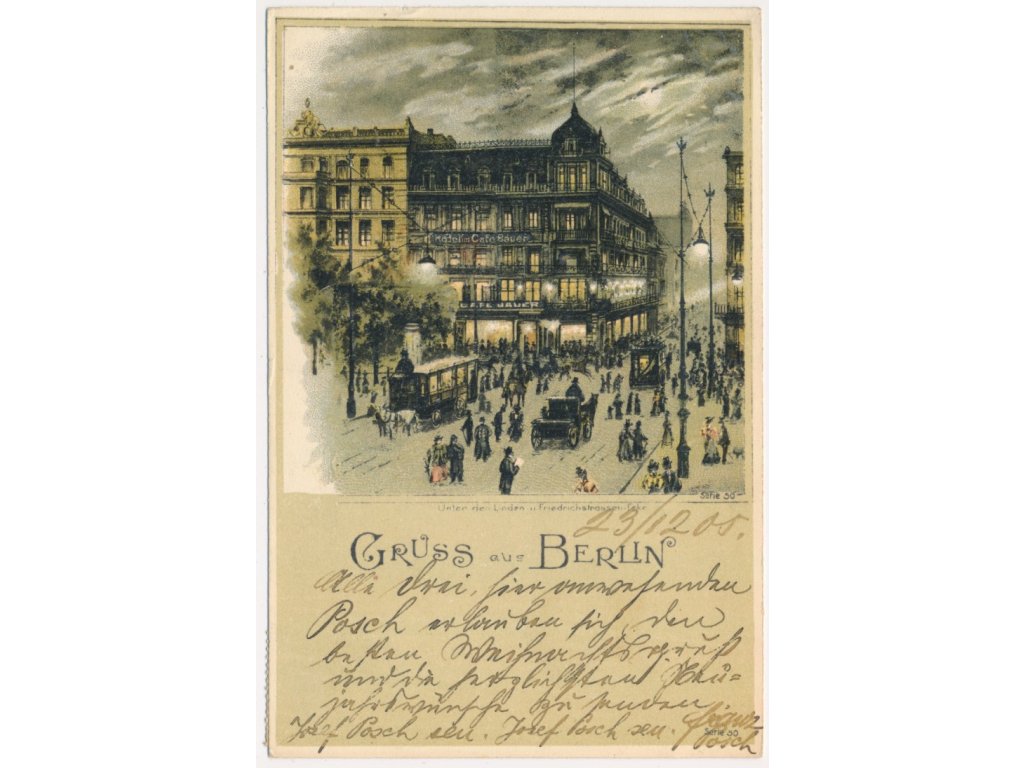 Hotel u. Café Bauer
CAFE BAUER
Serie 50
Unter den Linden u. Friedrichstrassen-Ecke
23/12 05.
GRUSS aus BERLIN
Alle drei, hier anwesenden
Posch erlauben sich, den
besten Weihnachtsgruß
und die herzlichsten Neu=
jahrswünsche zu senden.
Josef Posch sen. Josef Posch sen. Franz
Serie 50
Posch